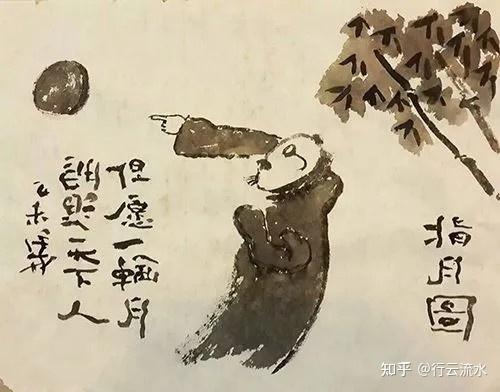 指月圖
但愿一輪月
天下人
乙未
知乎 @行云流水